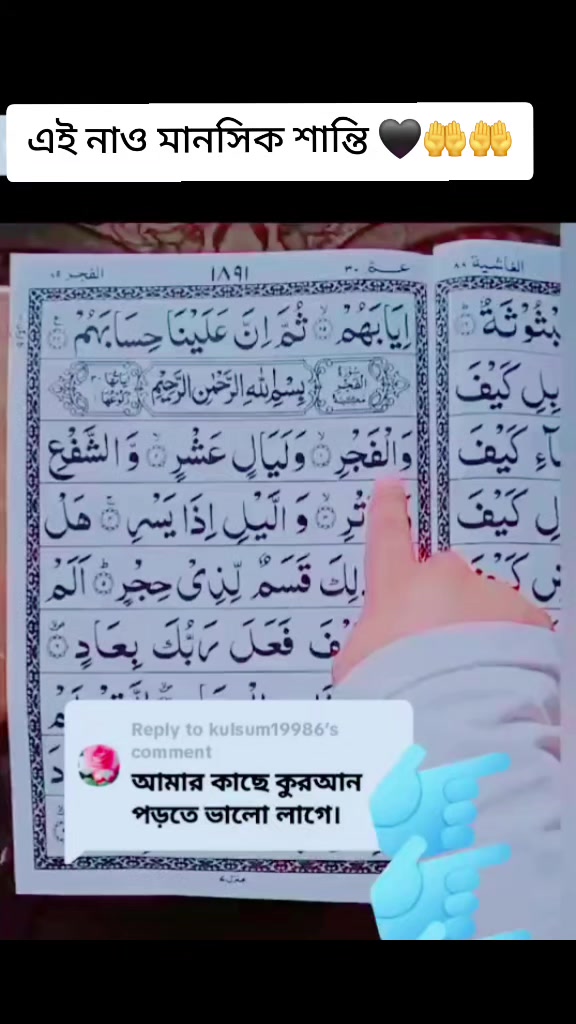 এই নাও মানসিক শান্তি 🖤🤲🤲
الفجر
١٨٩١
عـمّ ٣٠
الغاشية ٨٨
اِيَابَهُمْ ۙ ثُمَّ اِنَّ عَلَيْنَا حِسَابَهُمْ
سُوْرَةُ الْفَجْرِ مَكِّيَّةٌ
بِسْمِ اللهِ الرَّحْمٰنِ الرَّحِيْمِ
وَالْفَجْرِ ۙ وَلَيَالٍ عَشْرٍ ۙ وَّالشَّفْعِ
وَالَّيْلِ اِذَا يَسْرِ ۚ هَلْ
قَسَمٌ لِّذِىْ حِجْرٍ ؕ اَلَمْ
فَعَلَ رَبُّكَ بِعَادٍ
كَيْفَ
كَيْفَ
كَيْفَ
Reply to kulsum19986's
comment
আমার কাছে কুরআন
পড়তে ভালো লাগে।